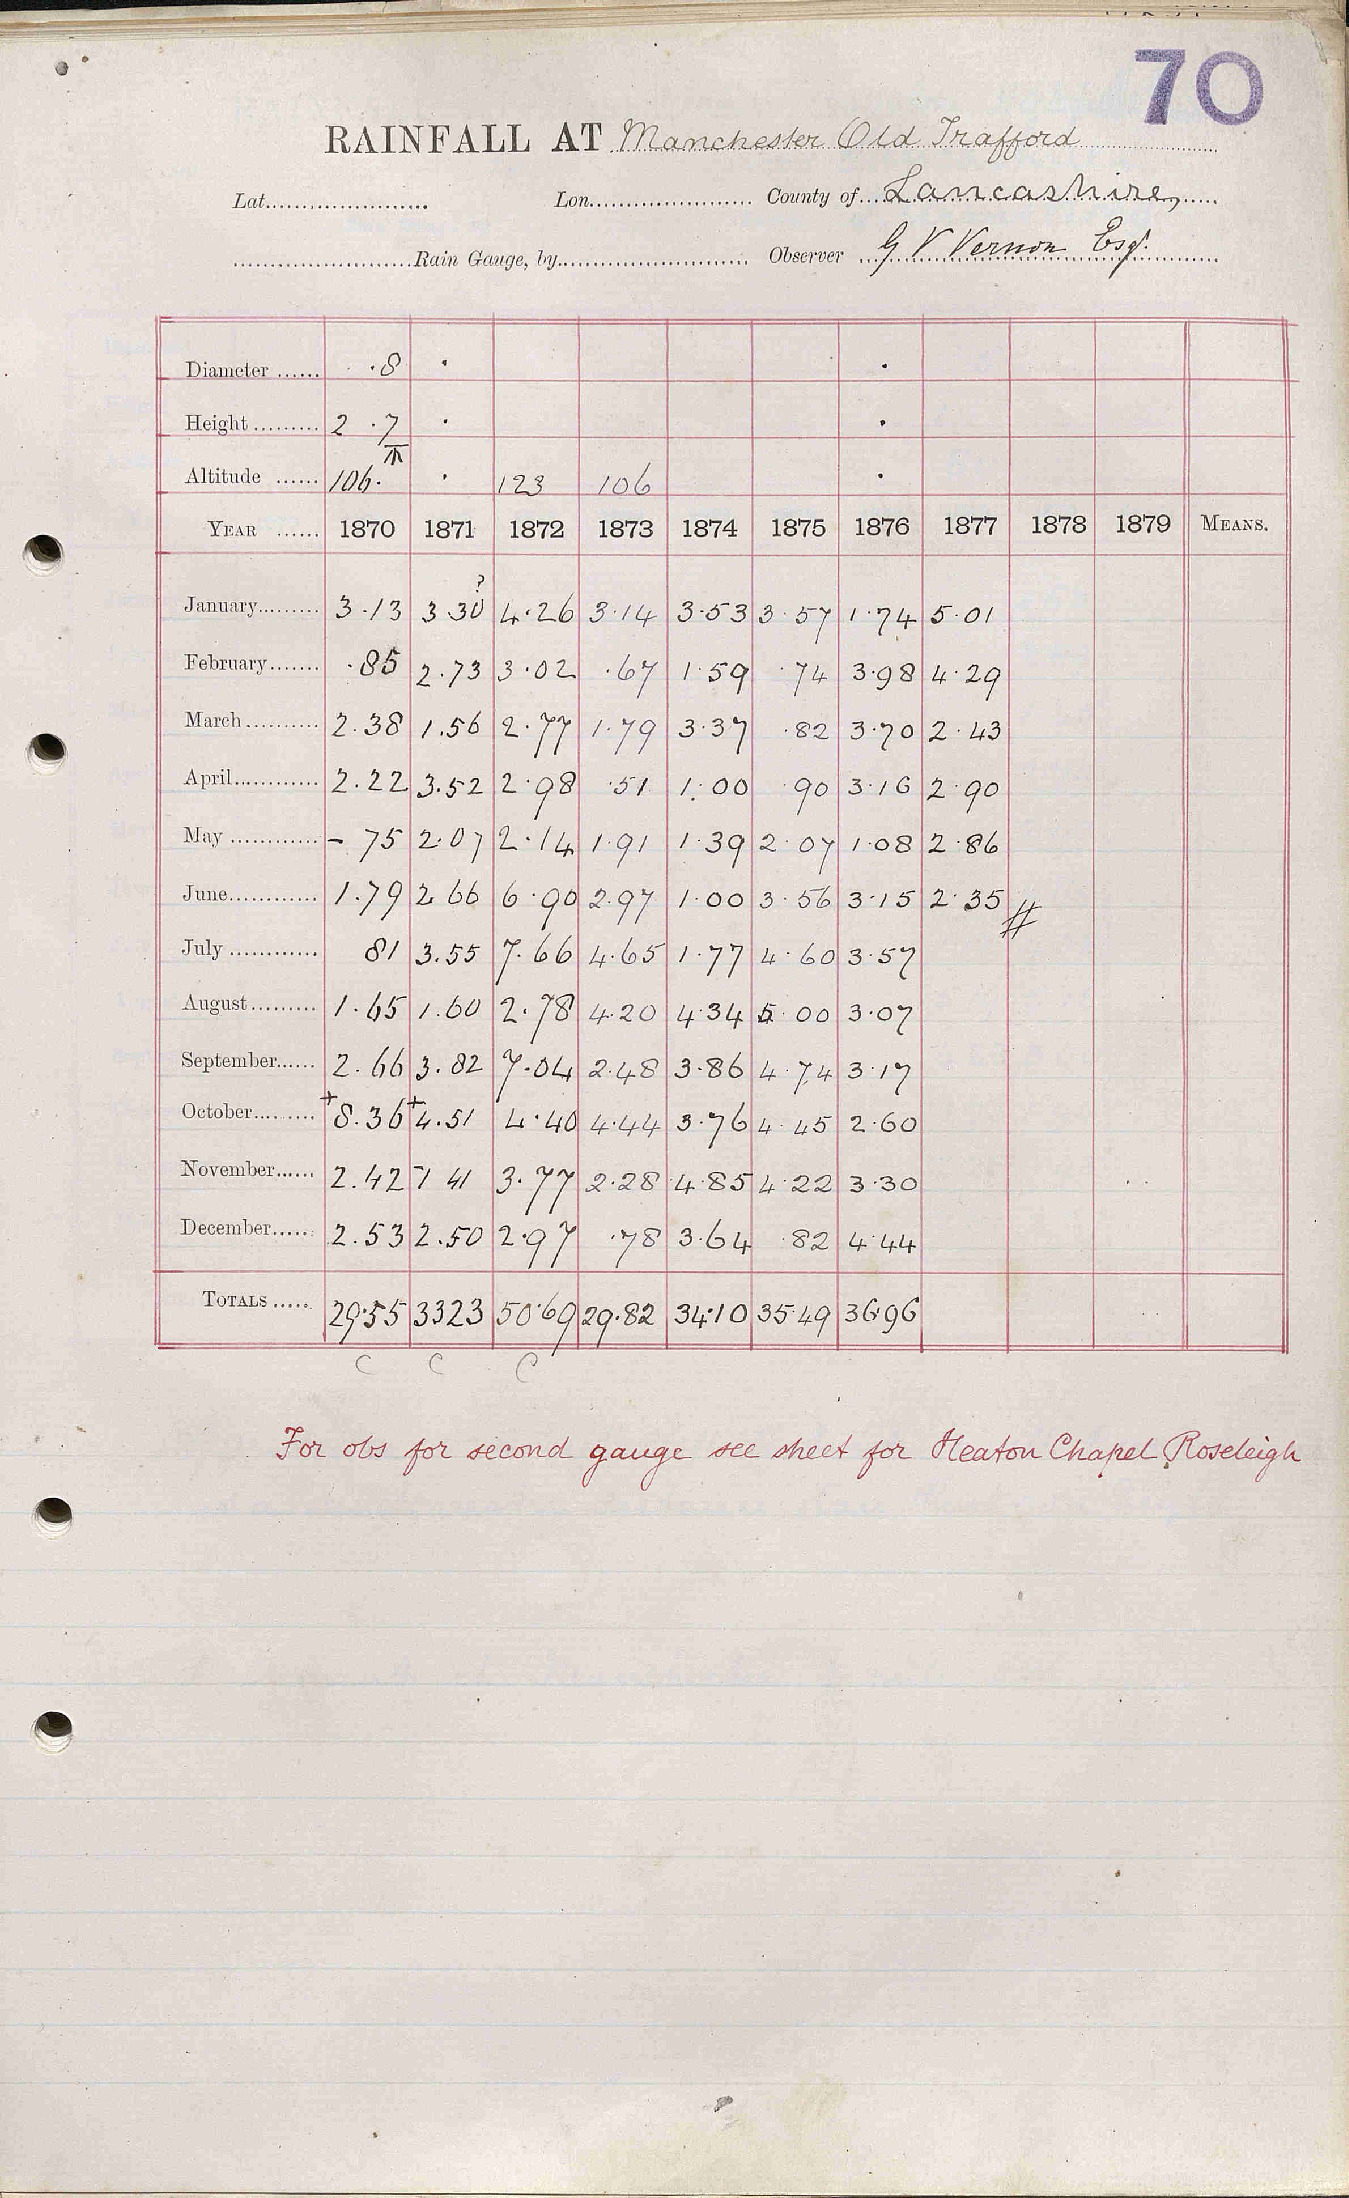 70
RAINFALL AT Manchester Old Trafford
Lat. Lon. County of Lancashire,
Rain Gauge, by Observer G V Vernon Esq.
Diameter ...... .8
Height ......... 2 .7
Altitude ...... 106. 123 106
YEAR ...... 1870 1871 1872 1873 1874 1875 1876 1877 1878 1879 MEANS.
?
January......... 3.13 3 30 4.26 3.14 3.53 3.57 1.74 5.01
February....... .85 2.73 3.02 .67 1.59 .74 3.98 4.29
March .......... 2.38 1.56 2.77 1.79 3.37 .82 3.70 2.43
April............ 2.22 3.52 2.98 .51 1.00 90 3.16 2.90
May ............ - 75 2.07 2.14 1.91 1.39 2.07 1.08 2.86
June............. 1.79 2 66 6.90 2.97 1.00 3.56 3.15 2.35 #
July ............ 81 3.55 7.66 4.65 1.77 4.60 3.57
August ......... 1.65 1.60 2.78 4.20 4.34 5.00 3.07
September...... 2.66 3.82 7.04 2.48 3.86 4.74 3.17
October......... +8.36 +4.51 4.40 4.44 3.76 4.45 2.60
November...... 2.42 1 41 3.77 2.28 4.85 4.22 3.30
December...... 2.53 2.50 2.97 .78 3.64 .82 4.44
TOTALS ..... 29.55 3323 50.69 29.82 34.10 35.49 36.96
C C C
For obs for second gauge see sheet for Heaton Chapel Roseleigh